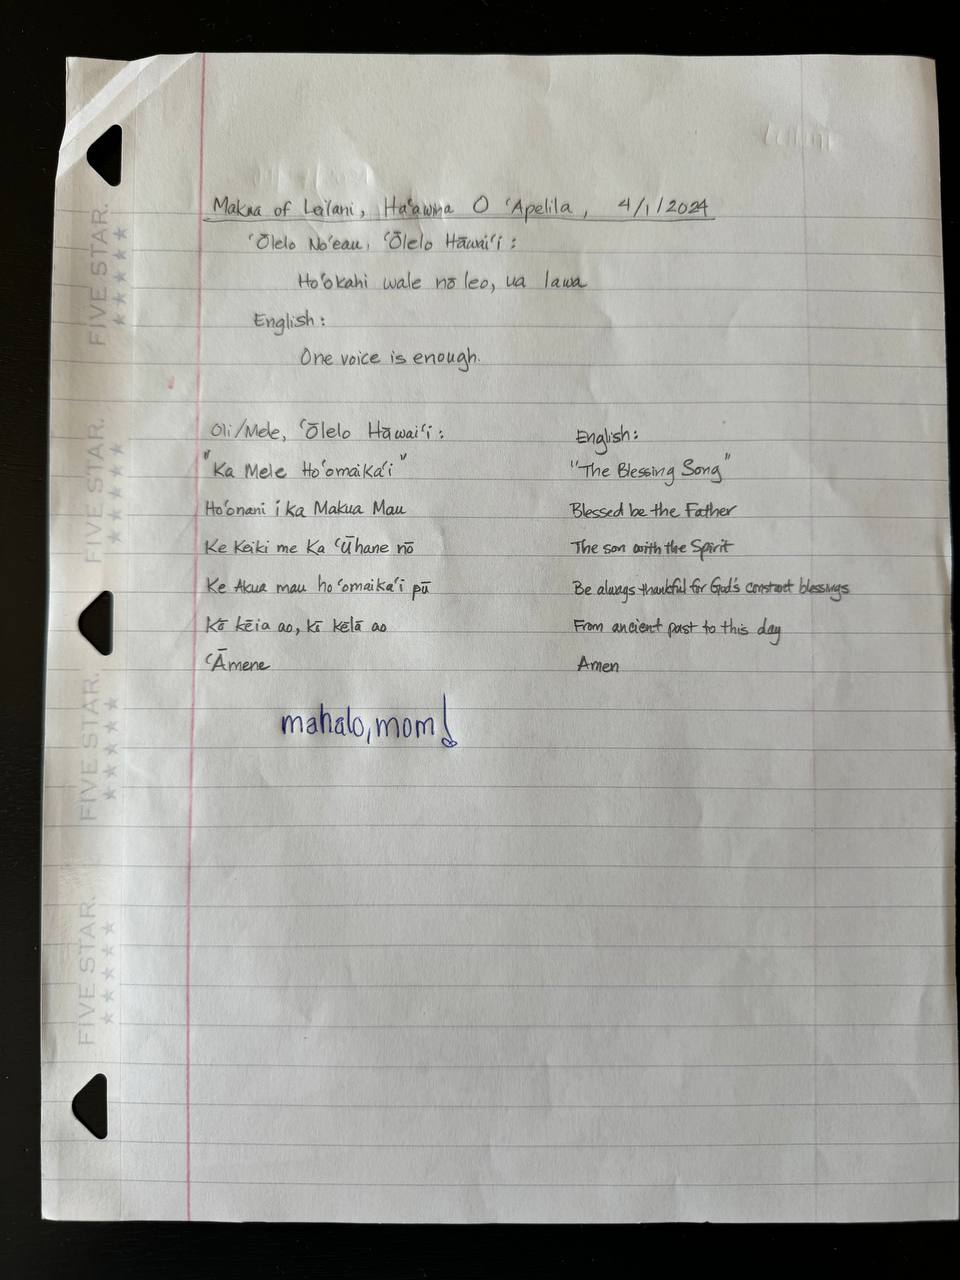 Makua of Leilani, Haʻawina O ʻApelila, 4/1/2024
ʻŌlelo Noʻeau, ʻŌlelo Hāwaiʻi:
Hoʻokahi wale nō leo, ua lawa
English:
One voice is enough.
Oli/Mele, ʻŌlelo Hāwaiʻi:
English:
"Ka Mele Hoʻomaikaʻi"
"The Blessing Song"
Hoʻonani i ka Makua Mau
Blessed be the Father
Ke Keiki me Ka ʻŪhane nō
The son with the Spirit
Ke Akua mau hoʻomaikaʻi pū
Be always thankful for God's constant blessings
Kō kēia ao, kō kēlā ao
From ancient past to this day
ʻĀmene
Amen
mahalo, mom!
FIVE STAR.
FIVE STAR.
FIVE STAR.
FIVE STAR.